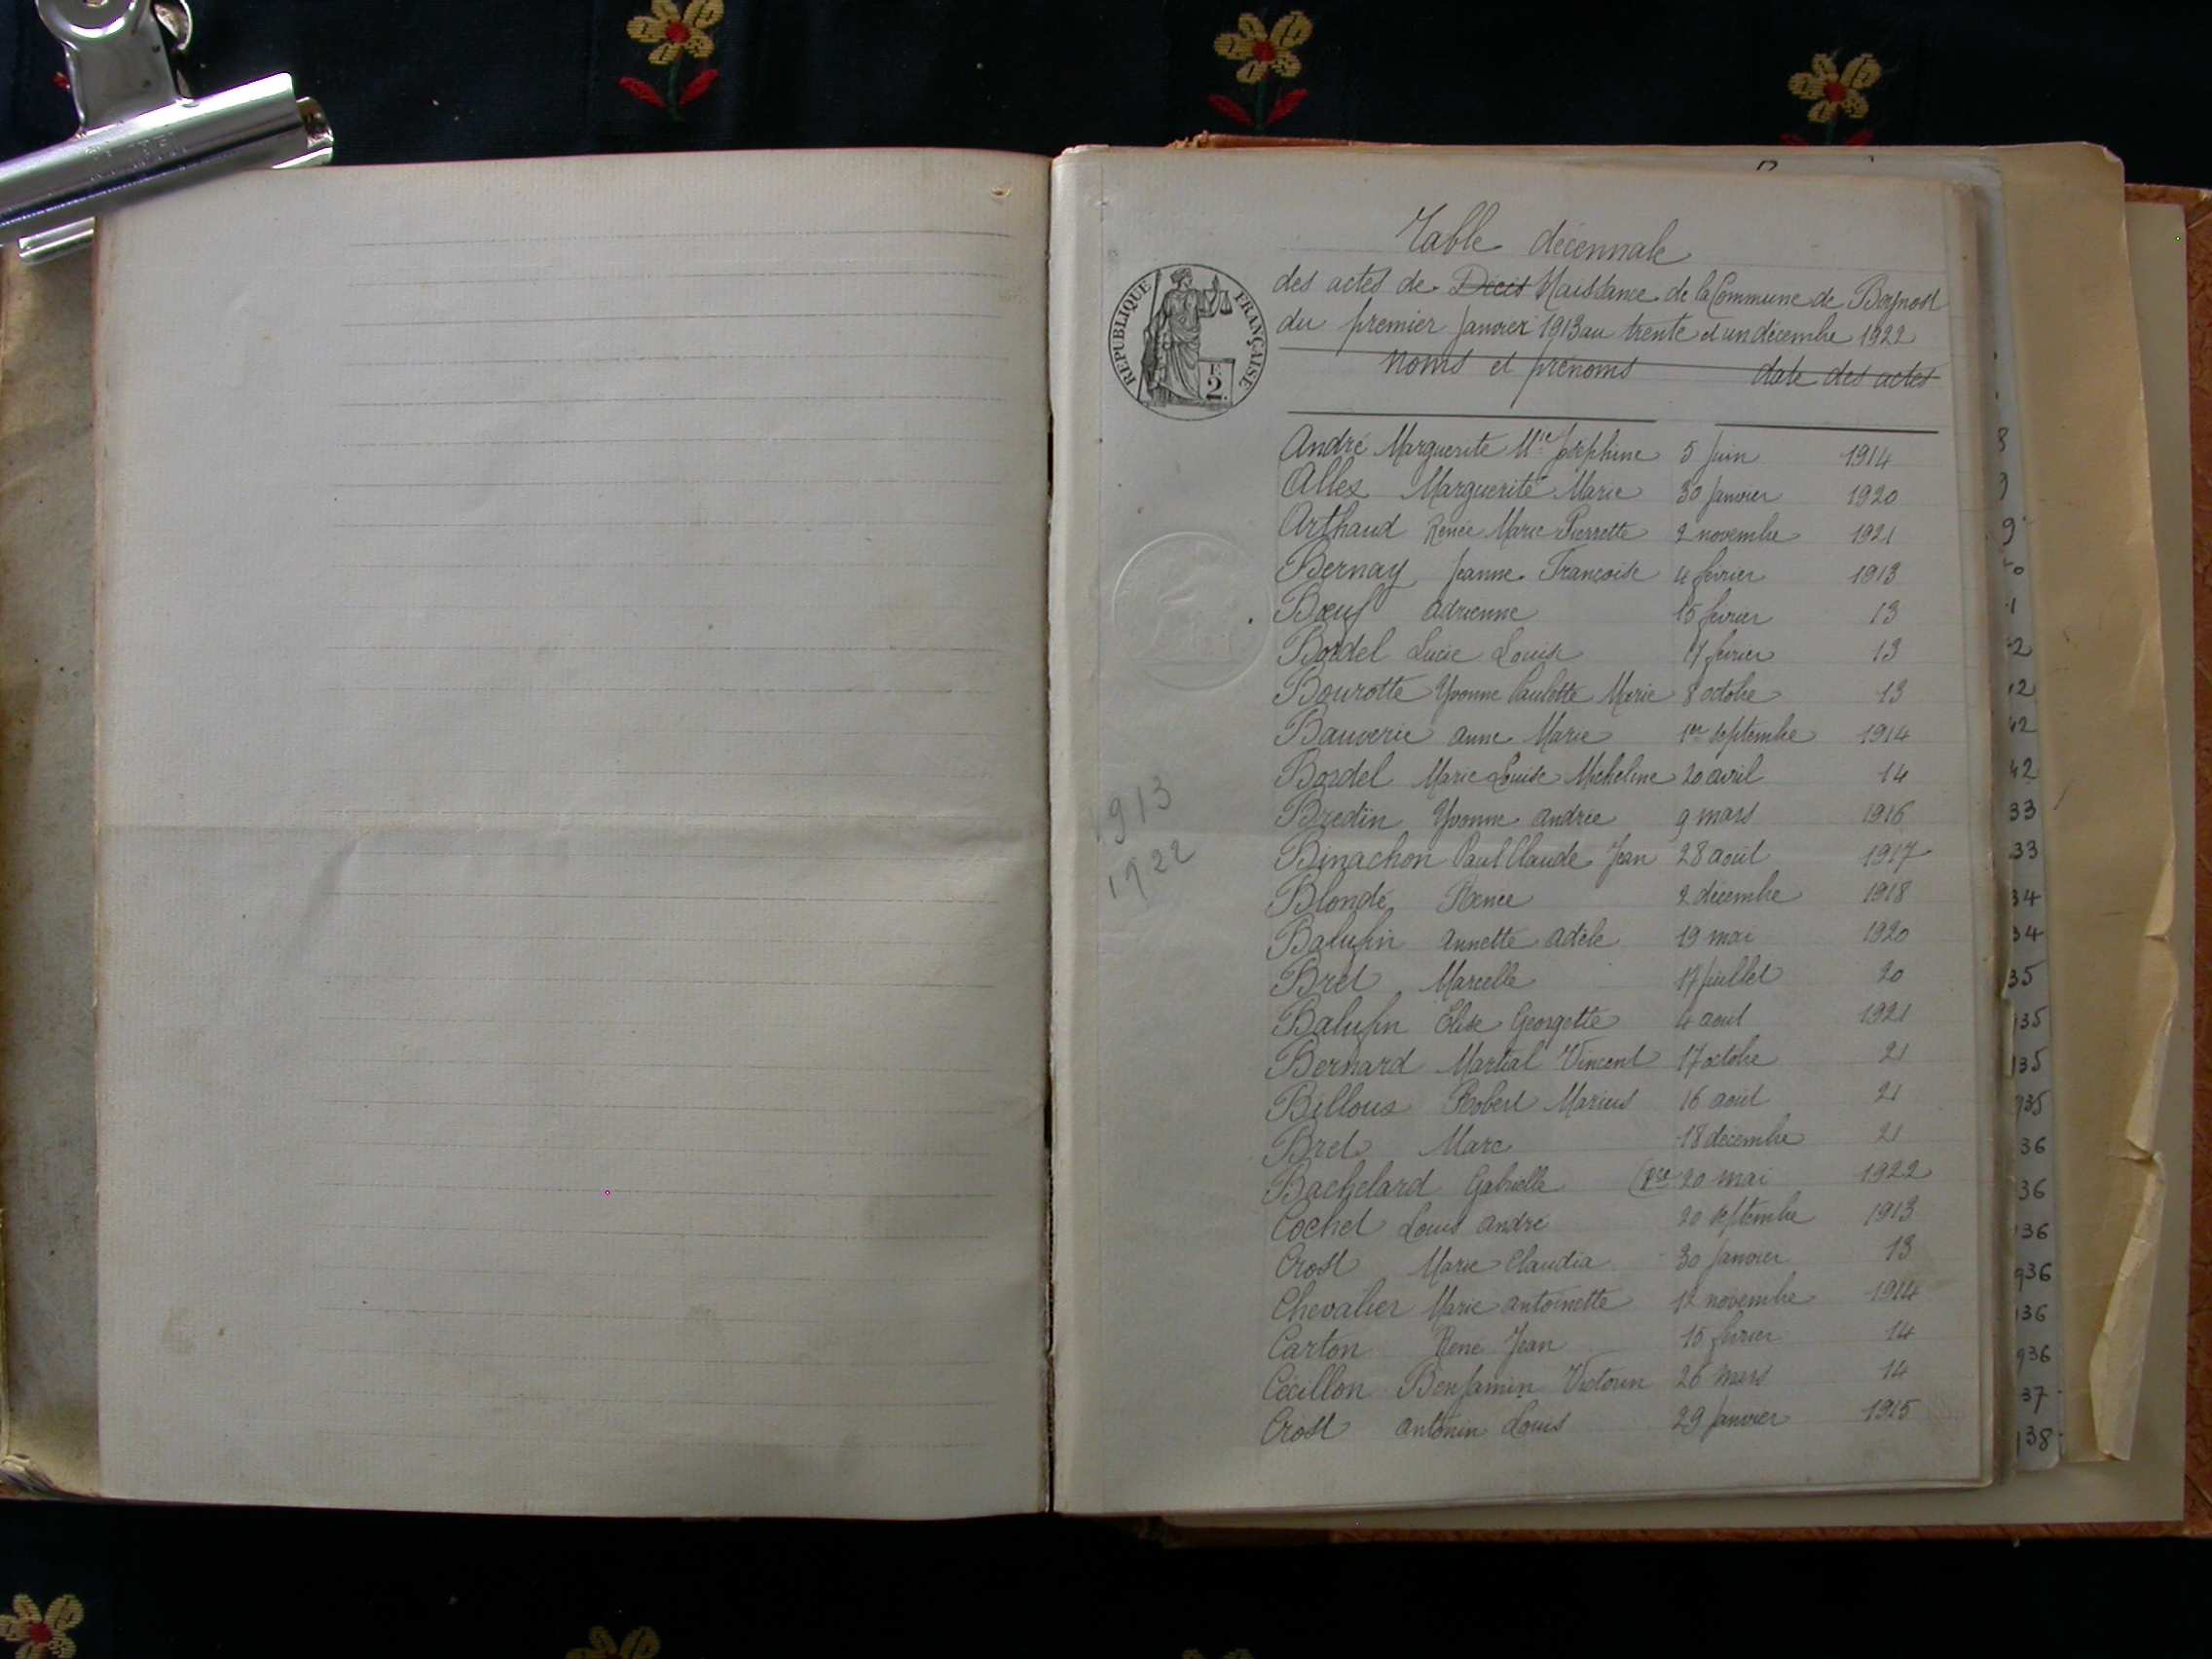 Table décennale
des actes de Décès Naissance de la Commune de Beynost
du premier Janvier 1913 au trente et un décembre 1922
noms et prénoms date des actes
REPUBLIQUE FRANÇAISE
F.
2.
André Marguerite Mie Joséphine 5 Juin 1914
Alles Marguerite Marie 30 Janvier 1920
Arthaud Renée Marie Pierrette 2 novembre 1921
Bernay Jeanne Françoise 4 février 1913
Bœuf Adrienne 15 février 13
Bordel Lucie Louise 17 février 13
Bourotte Yvonne Paulette Marie 8 octobre 13
Bauverie Anne Marie 1er septembre 1914
Bordel Marie Louise Micheline 20 avril 14
Bredin Yvonne Andrée 9 mars 1916
Binachon Paul Claude Jean 28 août 1917
Blondé Renée 2 décembre 1918
Balufin Annette Adèle 19 mai 1920
Bret Marcelle 17 Juillet 20
Balufin Elise Georgette 4 août 1921
Bernard Martial Vincent 17 octobre 21
Billoux Robert Marius 16 août 21
Bret Marc 18 décembre 21
Bachelard Gabrielle 20 mai 1922
Cochet Louis André 20 septembre 1913
Crost Marie Claudia 30 Janvier 13
Chevalier Marie Antoinette 12 novembre 1914
Carton René Jean 15 février 14
Cécillon Benjamin Victorin 26 mars 14
Crost Antonin Louis 29 Janvier 1915
1913
1922
8
9
33
33
34
34
35
135
135
935
36
36
136
936
136
936
37
138